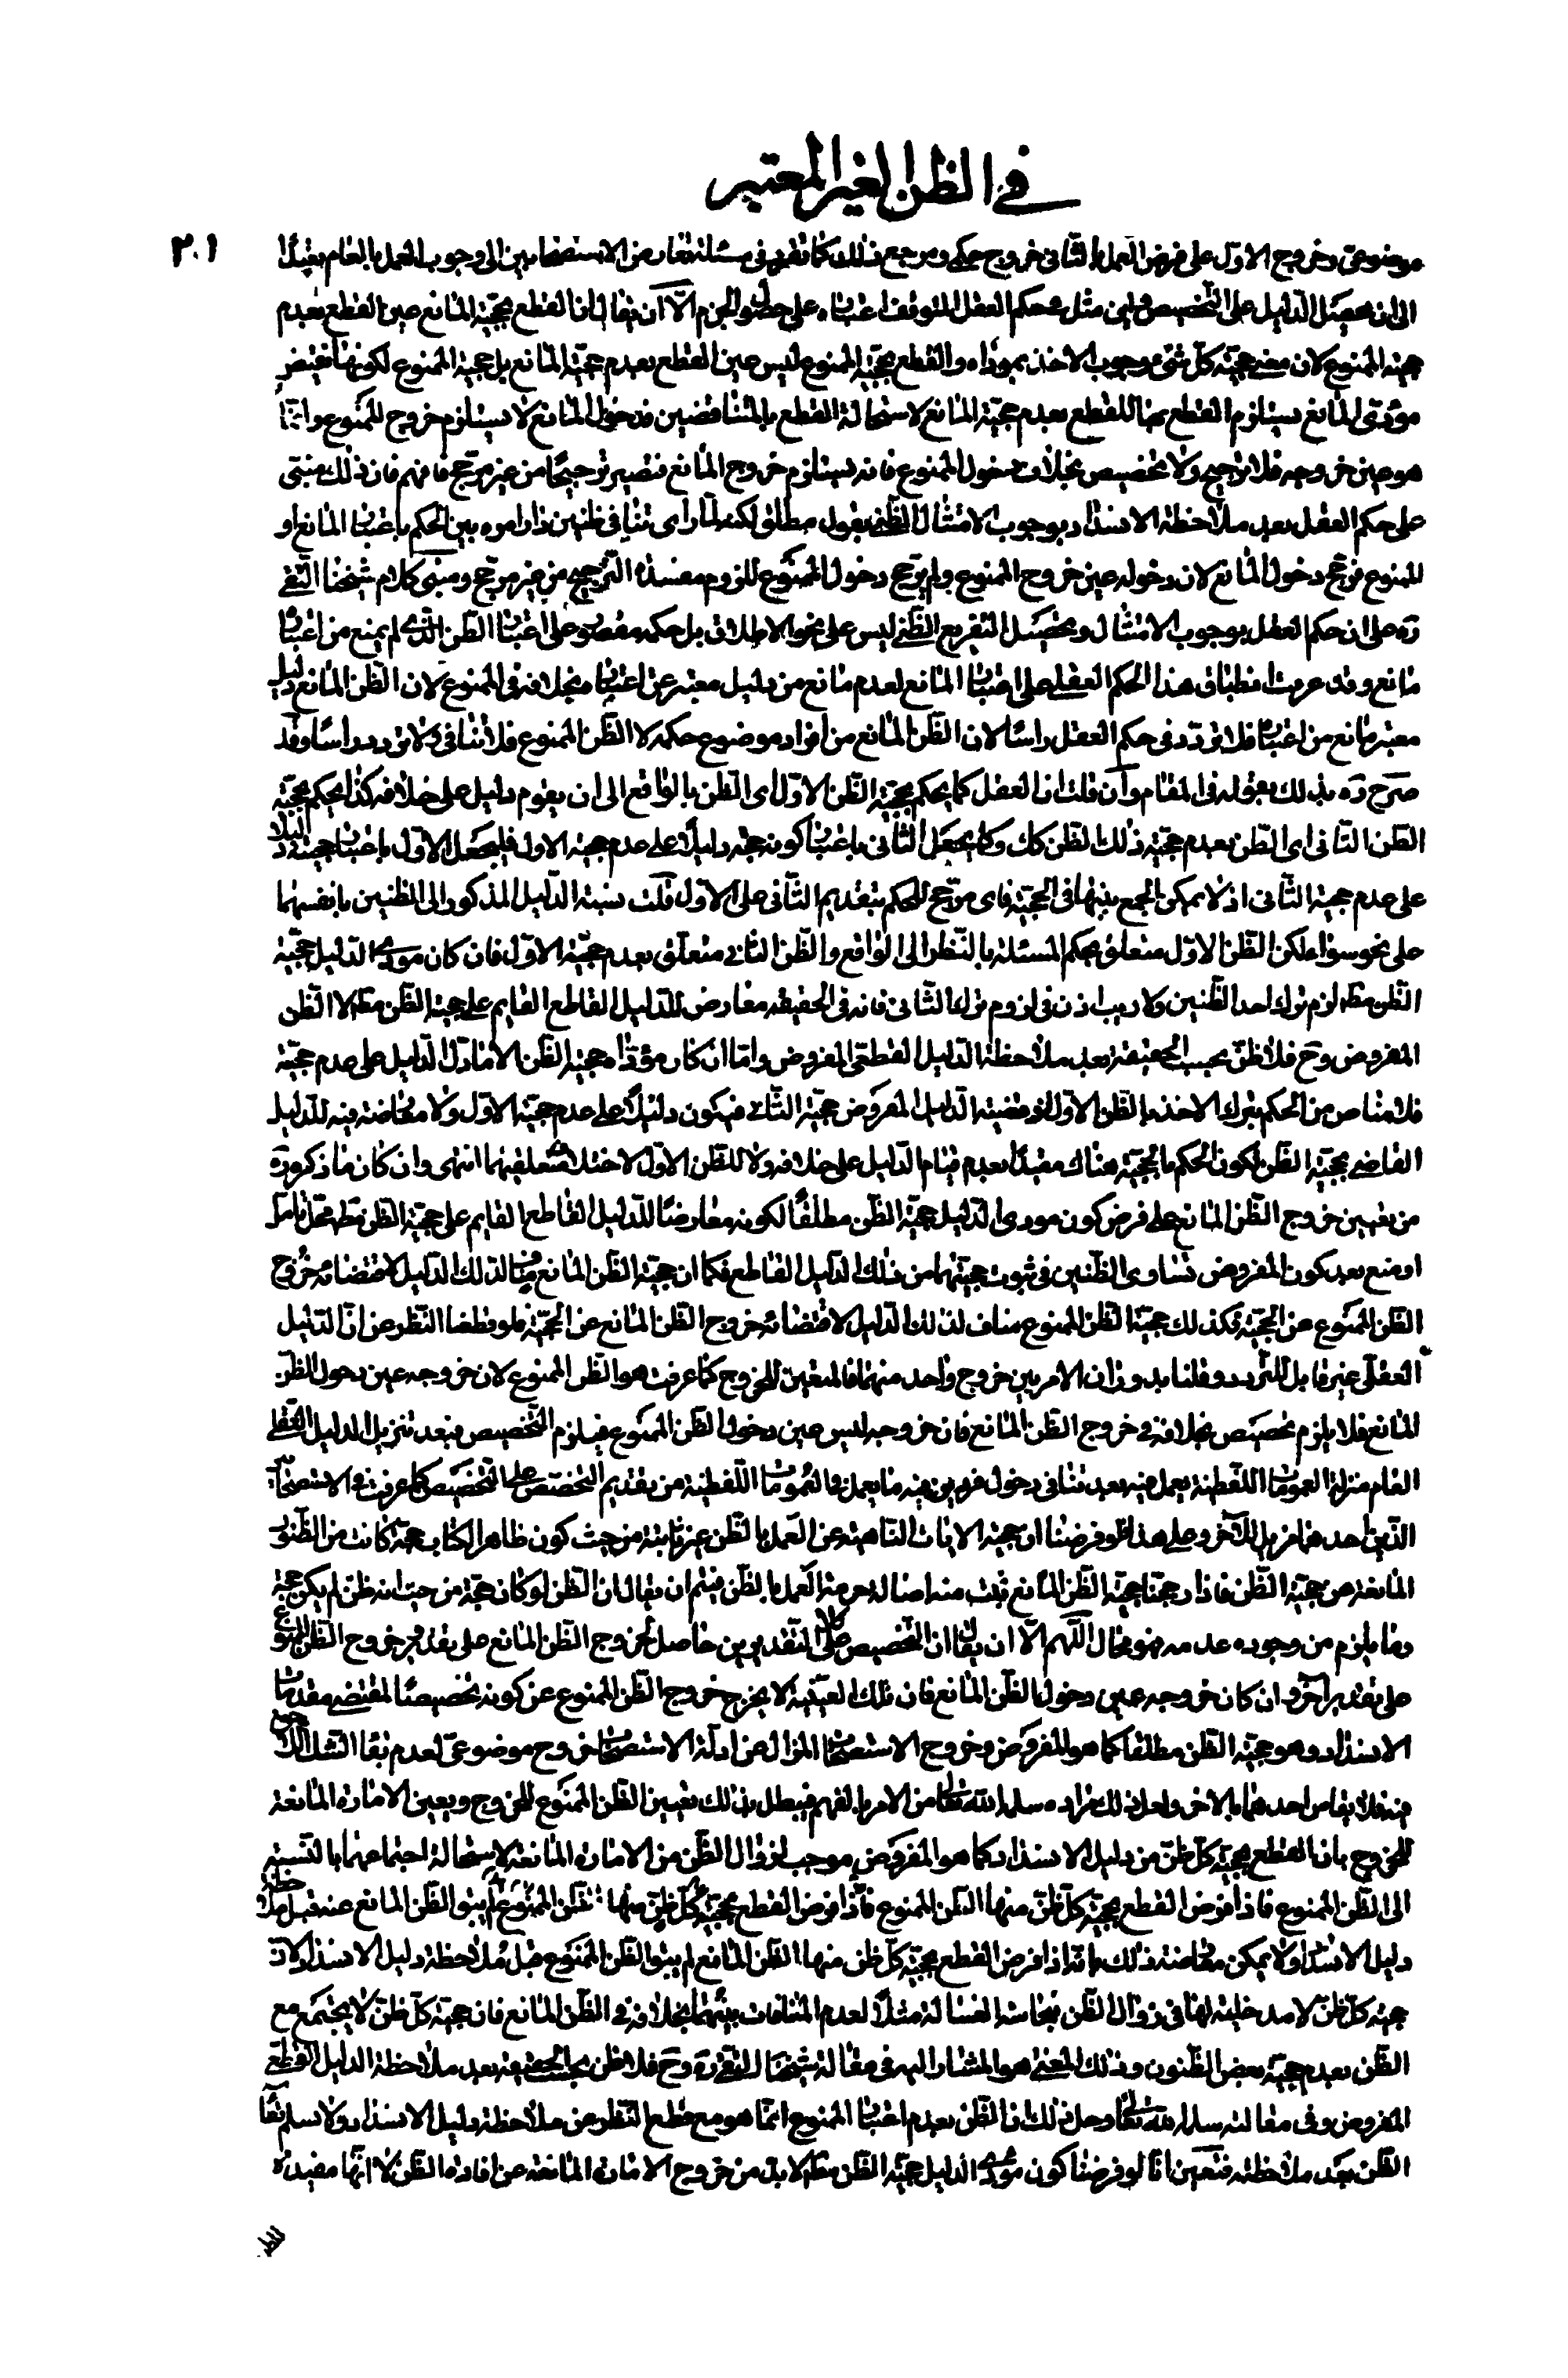 في الظن الغير المعتبر
٢٠١
موضوعى وخروج الاوّل على فرض العمل بالثّانى خروج حكمى ومرجع ذلك كما تقرر فى مسئلة تعارض الاستصحابين الى وجوب العمل بالعام
الى ان يحصل الدّليل على التّخصيص مثل حكم العقل المتوقف اعتباره على حصول الجزم الّا ان يقال ان القطع بحجّية المانع عين القطع بعدم
حجيّة الممنوع لان معنى حجيّة كلّ شىء وجوب الاخذ بمؤدّاه والقطع بحجيّة الممنوع ليس عين القطع بعدم حجيّة المانع بل حجية الممنوع لكونها نقيض
مؤدّى المانع يستلزم القطع بها للقطع بعدم حجيّة المانع لاستحالة القطع بالمتناقضين فدخول المانع لا يستلزم خروج الممنوع وانّما
هو عين خروجه فلا ترجيح ولا تخصيص بخلاف دخول الممنوع فانه يستلزم خروج المانع فتصير ترجيحا من غير مرجّح فافهم فان ذلك مبنى
على حكم العقل بعد ملاحظة الانسداد بوجوب الامتثال الظّنى بقول مطلق لكنه لما راى تنافى ظنيين دار امره بين الحكم باعتبار المانع او
الممنوع فرجّح دخول المانع لان دخوله عين خروج الممنوع ولم يرجّح دخول الممنوع للزوم مفسدة الترجيح من غير مرجّح ومبنى كلام شيخنا التّقى
ره على ان حكم العقل بوجوب الامتثال وتحصيل التفريغ الظّنى ليس على نحو الاطلاق بل حكمه مقصور على اعتبار الظن الّذى لم يمنع من اعتباره
مانع وقد عرفت انطباق هذا الحكم العقلى على اعتبار المانع لعدم مانع من دليل معتبر عن اعتباره بخلافه فى الممنوع لان الظن المانع دليل
معتبر مانع من اعتباره فلا تردّد فى حكم العقل راسًا لان الظّن المانع من افراد موضوع حكمه لا الظّن الممنوع فلا تنافى ولا تردد راسًا وقد
صرّح ره بذلك بقوله فى المقام وان قلت ان العقل كما يحكم بحجيّة الظّن الاوّل اى الظّن بالواقع الى ان يقوم دليل على خلافه كذا يحكم بحجيّة
الظن الثانى اى الظن بعدم حجيّة ذلك الظن كك وكما يجعل الثّانى باعتبار كونه حجّة دليلًا على عدم حجيّة الاول فليجعل الاوّل باعتبار حجيته دليلا
على عدم حجيّة الثّانى اذ لا يمكن الجمع بينهما فى الحجيّة فاى مرجّح للحكم بتقديم الثّانى على الاوّل قلت نسبة الدّليل المذكور الى الظنيين بانفسهما
على نحو سواء لكن الظّن الاوّل متعلق بحكم المسئلة بالنّظر الى الواقع والظّن الثانى متعلّق بعدم حجيّة الاوّل فان كان مودى الدليل حجيّة
الظّن مطلقا لزم ترك احد الظّنيين ولا ريب اذن فى لزوم ترك الثّانى فانه فى الحقيقة معارض للدّليل القاطع القايم على حجيّة الظّن مطلقا لا الظّن
المفروض وح فلا ظنّ بحسب الحقيقة بعد ملاحظة الدّليل القطعى المفروض وامّا ان كان مؤدّاه حجيّة الظّن الا ما دلّ الدّليل على عدم حجيّة
فلا مناص من الحكم بترك الاخذ بالظّن الاوّل اذ قضية الدّليل المفروض حجيّة الثّانى فيكون دليلًا على عدم حجيّة الاوّل ولا مخالفة فيه للدّليل
القاضى بحجيّة الظّن لكون الحكم بالحجيّة هناك مقيدًا بعدم قيام الدّليل على خلافه ولا للظّن الاوّل لاختلاف متعلقيهما انتهى وان كان ما ذكره ره
من تعيين خروج الظّن المانع على فرض كون مودى الدّليل حجيّة الظّن مطلقًا لكونه معارضًا للدّليل القاطع القايم على حجيّة الظّن مطلقا محلّ تامل
او منع بعد كون المفروض تساوى الظّنيين فى ثبوت حجيّتهما من ذلك الدّليل القاطع فكما ان حجيّة الظّن المانع مناف لذلك الدليل لاقتضائه خروج
الظّن الممنوع عن الحجيّة فكذلك حجيّة الظّن الممنوع مناف لذلك الدّليل لاقتضائه خروج الظّن المانع عن الحجيّة فلو قطعنا النظر عن انّ الدّليل
العقلى غير قابل للتردد وقلنا بدوران الامر بين خروج واحد منهما فالمتعين للخروج كما عرفت هو الظّن الممنوع لان خروجه عين دخول الظّن
المانع فلا يلزم تخصيص بخلافه فى خروج الظن المانع فان خروجه ليس عين دخول الظن الممنوع فيلزم التّخصيص فبعد تنزيل الدليل العقلى
العام منزلة العمومات اللّفظية يعمل فيه بعد تنافى دخول فردين فيه ما يعمل فى العمومات اللّفظية من تقديم التخصّص على التّخصيص كما عرفت فى الاستصحابين
الّذين احدهما مزيل للآخر وعلى هذا فلو فرضنا ان حجيّة الايات النّاهية عن العمل بالظّن غير ثابتة من حيث كون ظاهر الكتاب حجّة كانت من الظّنون
المانعة عن حجيّة الظّن فاذا رجحنا حجيّة الظّن المانع ثبت منه اصالة حرمة العمل بالظّن فيتم ان يقال ان الظّن لو كان حجّة من حيث انه ظن لم يكن حجة
وما يلزم من وجوده عدمه فهو محال اللّهم الّا ان يقال ان التّخصيص على كلا التّقديرين حاصل لخروج الظّن المانع على تقدير خروج الظّن الممنوع
على تقدير آخر وان كان خروجه عين دخول الظّن المانع فان تلك العينيّة لا يخرج خروج الظّن الممنوع عن كونه تخصيصًا لمقتضى مقدمات
الانسداد وهو حجيّة الظّن مطلقا كما هو المفروض وخروج الاستصحاب المزال عن ادلة الاستصحاب خروج موضوعىّ لعدم بقاء الشك
فيه فلا يقاس احدهما بالاخر ولعل ذلك مراده سلمه الله تعالى من الامر بالفهم فيبطل بذلك تعيين الظّن الممنوع للخروج ويعين الامارة المانعة
للخروج بان القطع بحجيّة كلّ ظنّ من دليل الانسداد كما هو المفروض موجب لزوال الظّن من الامارة المانعة لاستحالة اجتماعهما بالنّسبة
الى الظّن الممنوع فاذا فرض القطع بحجيّة كلّ ظنّ منها الظّن الممنوع لم يبق الظّن المانع عند ملاحظة
دليل الانسداد ولا يمكن معارضة ذلك بانّه اذا فرض القطع بحجيّة كلّ ظن منها الظّن المانع لم يبق الظّن الممنوع قبل ملاحظة دليل الانسداد لان
حجيّة كلّ ظنّ لا مدخلية لها فى زوال الظّن بنجاسة الغسالة مثلًا لعدم المنافات بينهما بخلافه فى الظّن المانع فان حجيّة كلّ ظنّ لا يجتمع مع
الظّن بعدم حجيّة بعض الظّنون وذلك المعنى هو المشار اليه فى مقالة شيخنا التقى ره وح فلا ظن بحسب الحقيقة بعد ملاحظة الدليل القطعى
المفروض وفى مقالته سلمه الله تعالى وحل ذلك ان الظّن بعدم اعتبار الممنوع انّما هو مع قطع النّظر عن ملاحظة دليل الانسداد ولا نسلم بقاء
الظّن بعد ملاحظته فتعين انّا لو فرضنا كون مؤدّى الدليل حجيّة الظّن مطلقا لا بد من خروج الامارة المانعة عن افادة الظّن لا انّها مفيدة